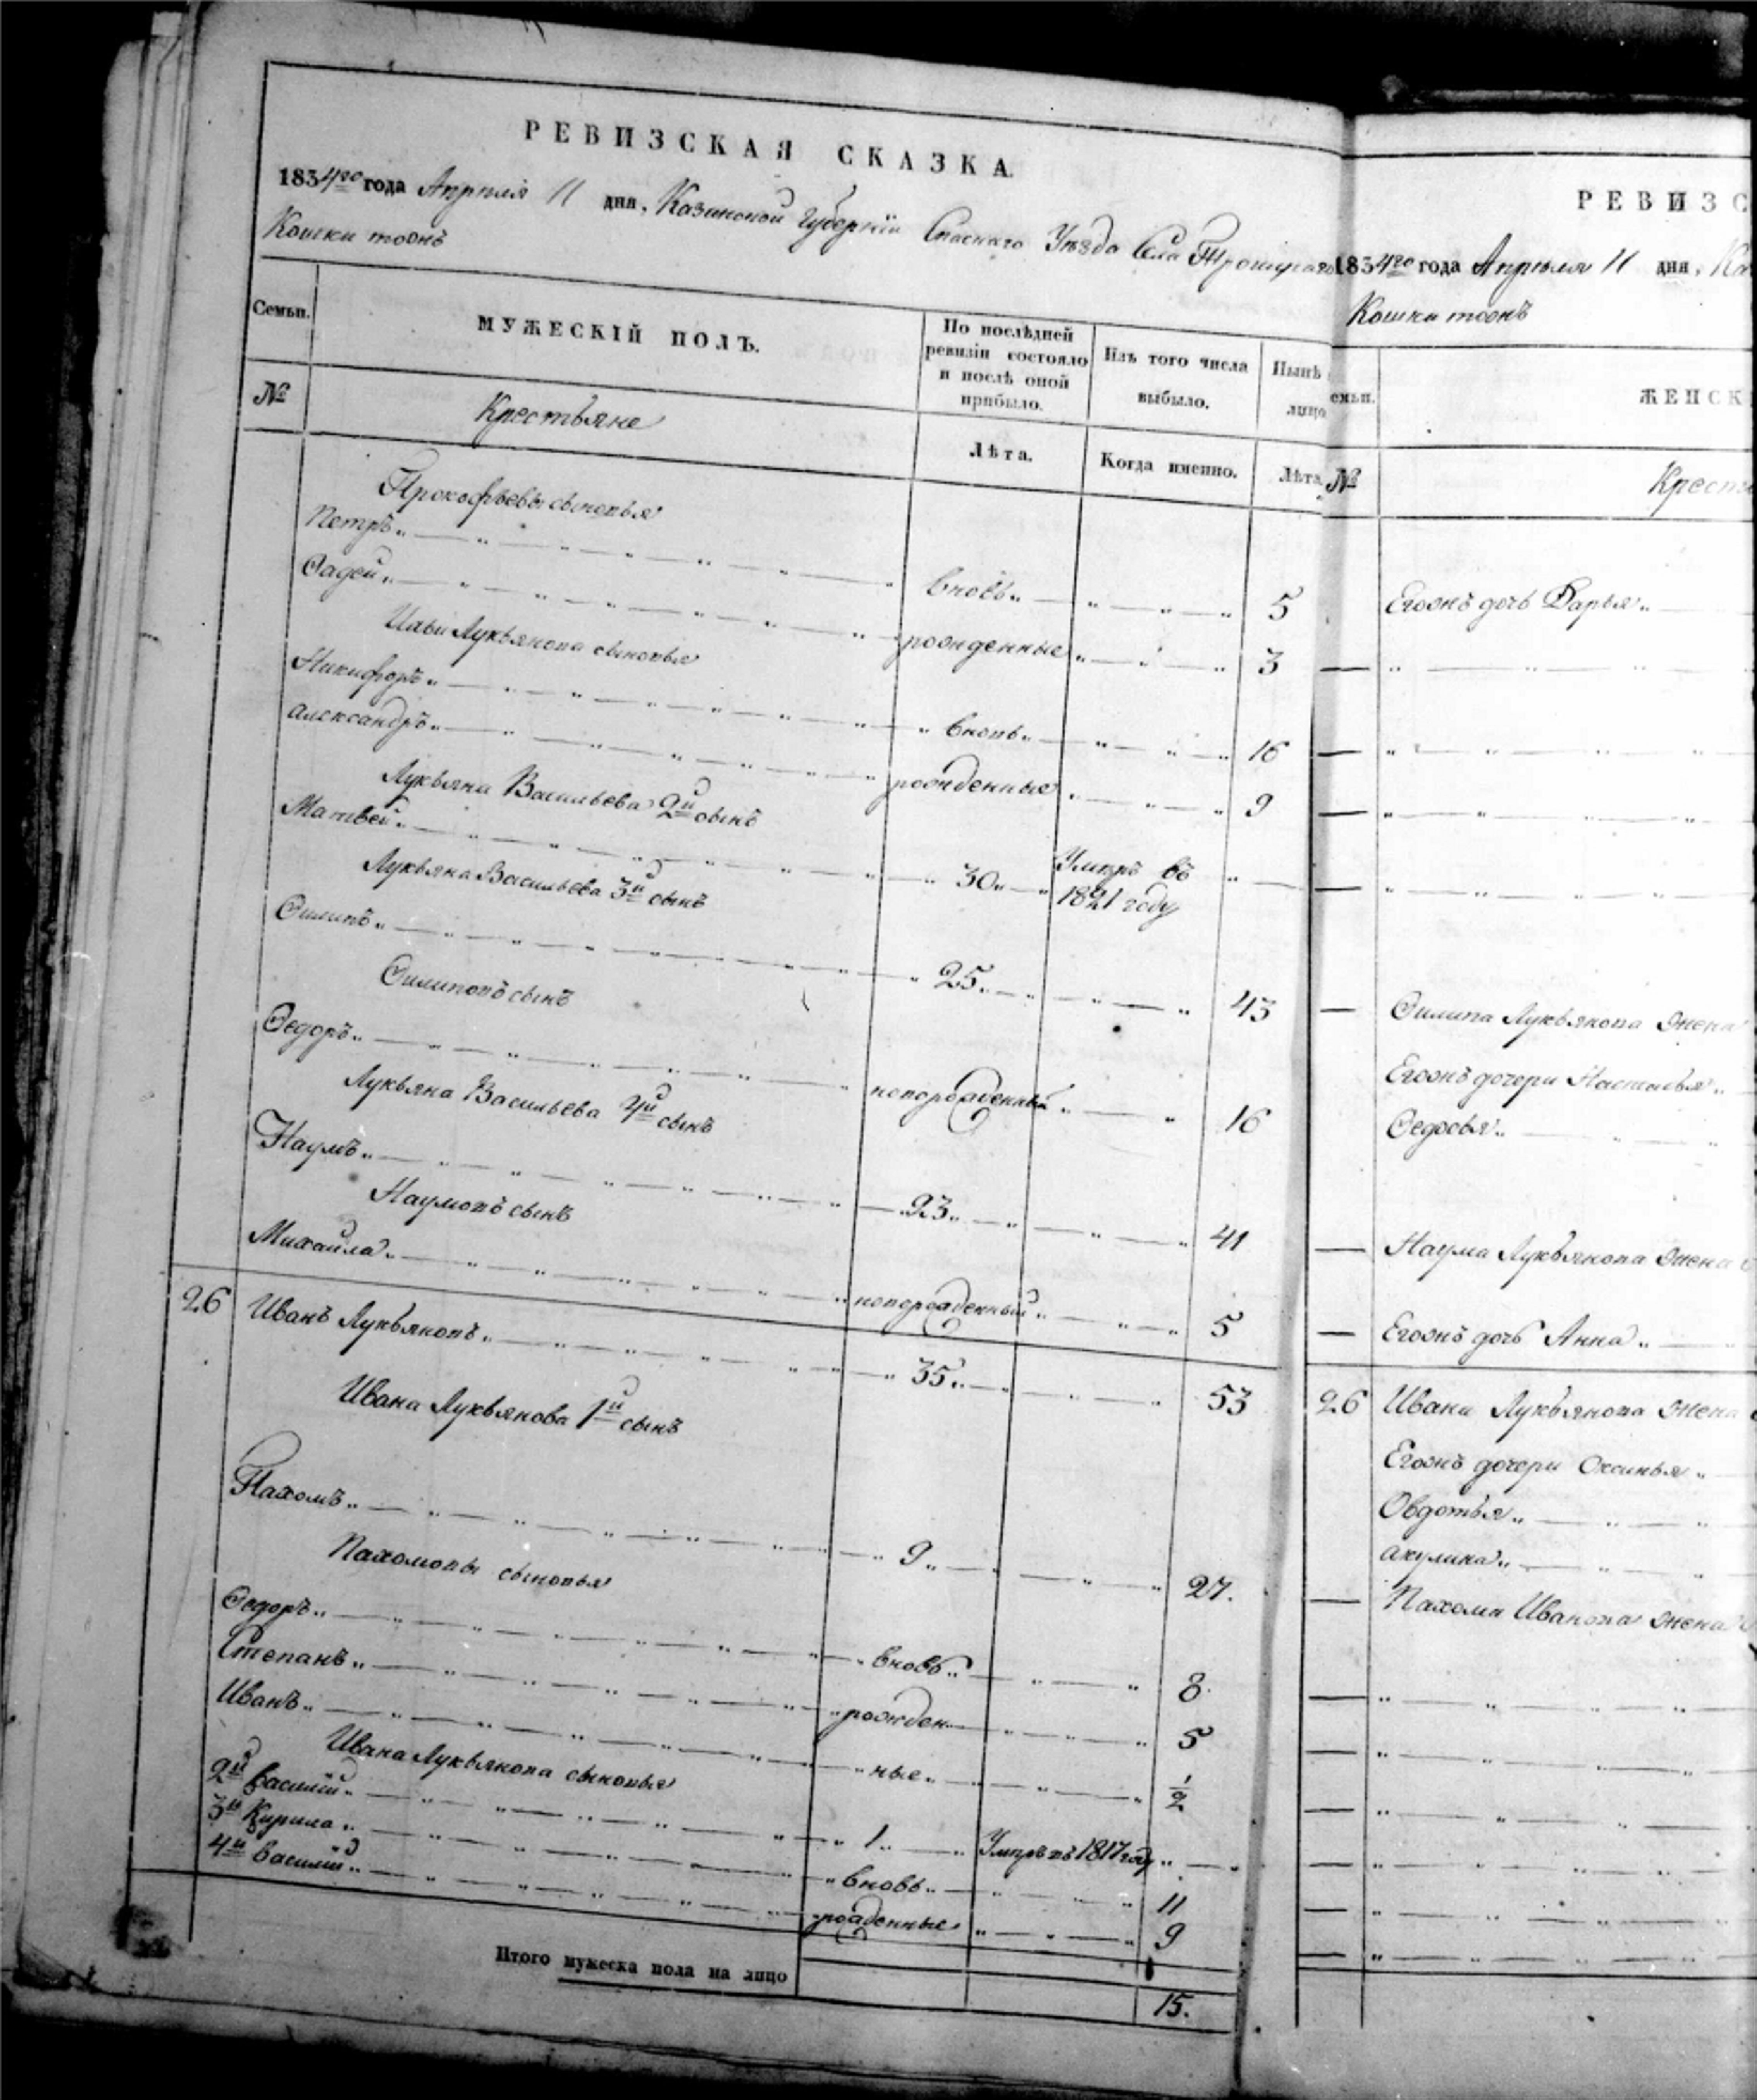 РЕВИЗСКАЯ СКАЗКА
1834го года Апреля 11 дня, Казанской Губернии Спаскаго Уезда Села Троицкаго
Кошки тожъ
Семьи.
МУЖЕСКІЙ ПОЛЪ.
По послѣдней ревизіи состояло и послѣ оной прибыло.
Изъ того числа выбыло.
Нынѣ лицо
№
Крестьяне
Лѣта.
Когда именно.
Лѣта
Прокофьевы сыновья
Петръ вновь 5
Фадей рожденные 3
Ильи Лукьянова сыновья
Никифоръ вновь 16
александръ рожденные 9
Лукьяна Васильева 2й сынъ
Матвей 30 Умеръ въ 1821 году
Лукьяна Васильева 3й сынъ
Филипъ 25 43
Филиповъ сынъ
Федоръ новорожденный 16
Лукьяна Васильева 4й сынъ
Наумъ 23 41
Наумовъ сынъ
Михайла новорожденный 5
26 Иванъ Лукьяновъ 35 53
Ивана Лукьянова 1й сынъ
Пахомъ 9 27.
Пахомовы сыновья
Федоръ вновь 8
Степанъ рожден 5
Иванъ ные 1/2
Ивана Лукьянова сыновья
2й Василий 1 Умеръ въ 1817 году
3й Кирила вновь 11
4й Василий рожденные 9
Итого мужеска пола на лицо 15.
РЕВИЗС
1834го года Апреля 11 дня, Ка
Кошки тожъ
емьи.
ЖЕНСК
№
Крестья
Егожъ дочь Дарья
Филипа Лукьянова жена
Егожъ дочери Настасья
Федосья
Наума Лукьянова жена
Егожъ дочь Анна
26 Ивана Лукьянова жена
Егожъ дочери Оксинья
Овдотья
акулина
Пахома Иванова жена